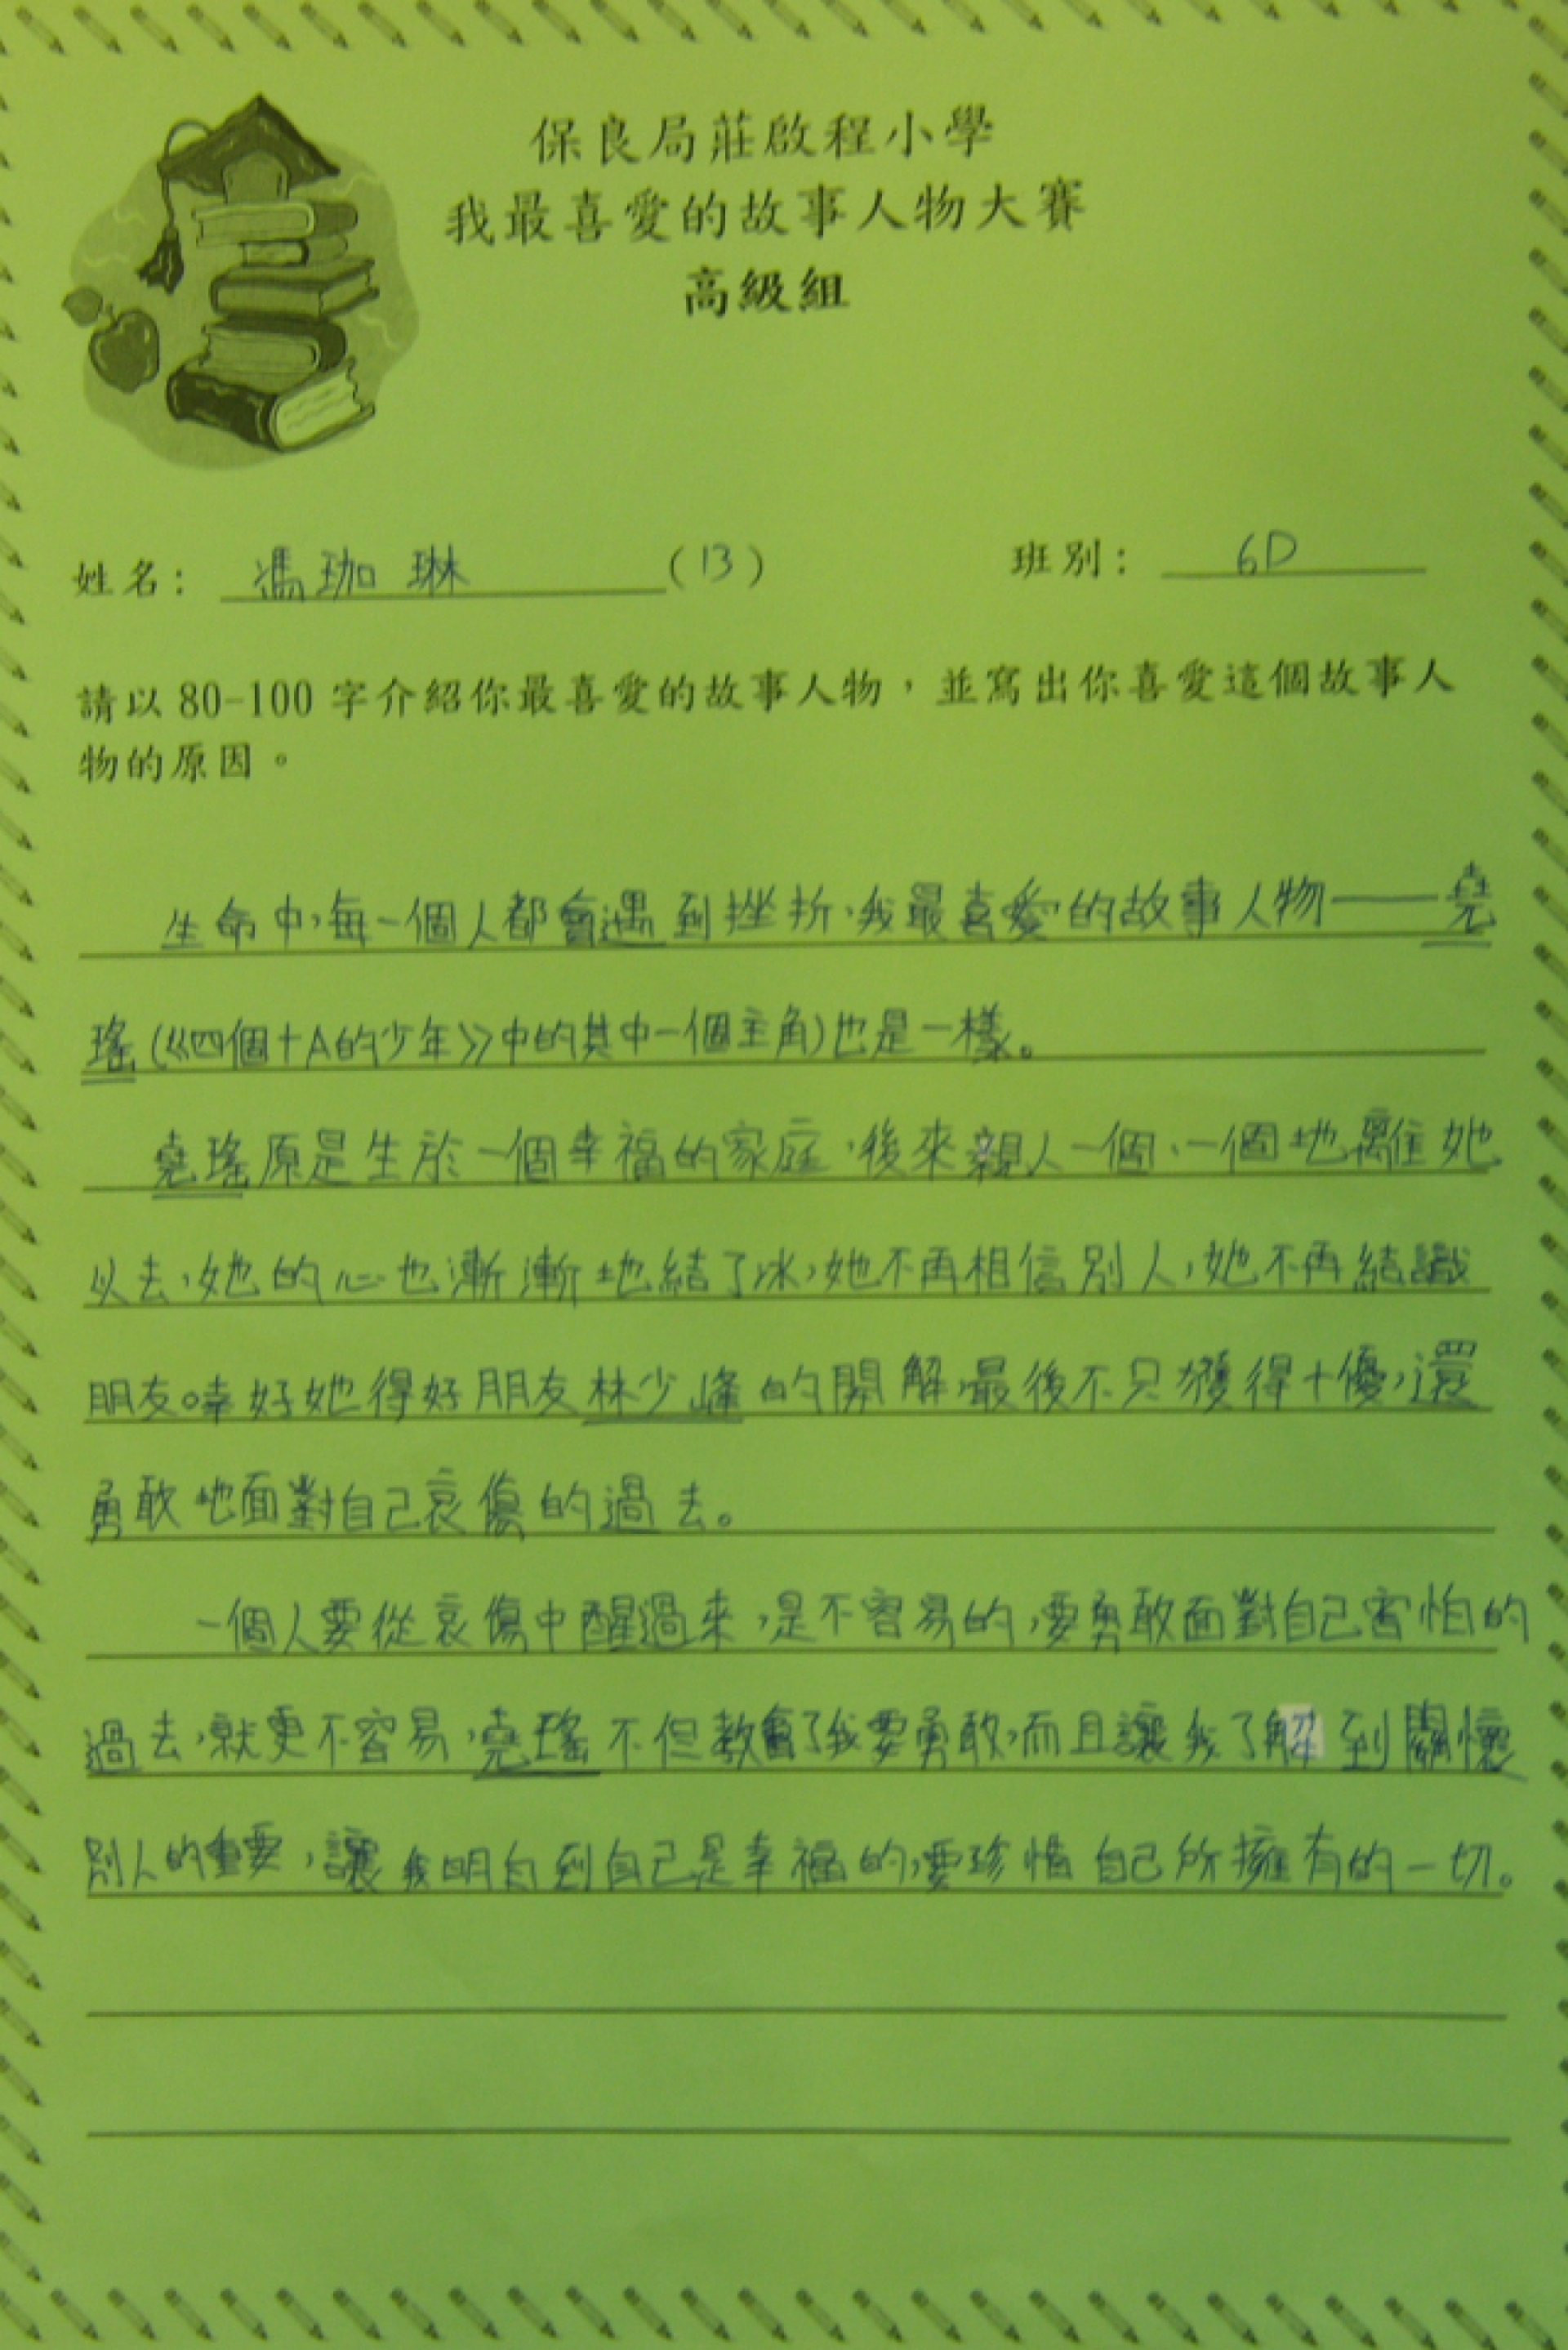 保良局莊啟程小學
我最喜愛的故事人物大賽
高級組
姓名： 馮珈琳 (13) 班別： 6D
請以 80-100 字介紹你最喜愛的故事人物，並寫出你喜愛這個故事人
物的原因。
生命中，每一個人都會遇到挫折，我最喜愛的故事人物——堯
瑤(《四個十A的少年》中的其中一個主角)也是一樣。
堯瑤原是生於一個幸福的家庭，後來親人一個、一個地離她
以去，她的心也漸漸地結了冰，她不再相信別人，她不再結識
朋友。幸好她得好朋友林少峰的開解，最後不只獲得十優，還
勇敢地面對自己哀傷的過去。
一個人要從哀傷中醒過來，是不容易的，要勇敢面對自己害怕的
過去，就更不容易，堯瑤不但教會了我要勇敢，而且讓我了解到關懷
別人的重要，讓我明白到自己是幸福的，要珍惜自己所擁有的一切。